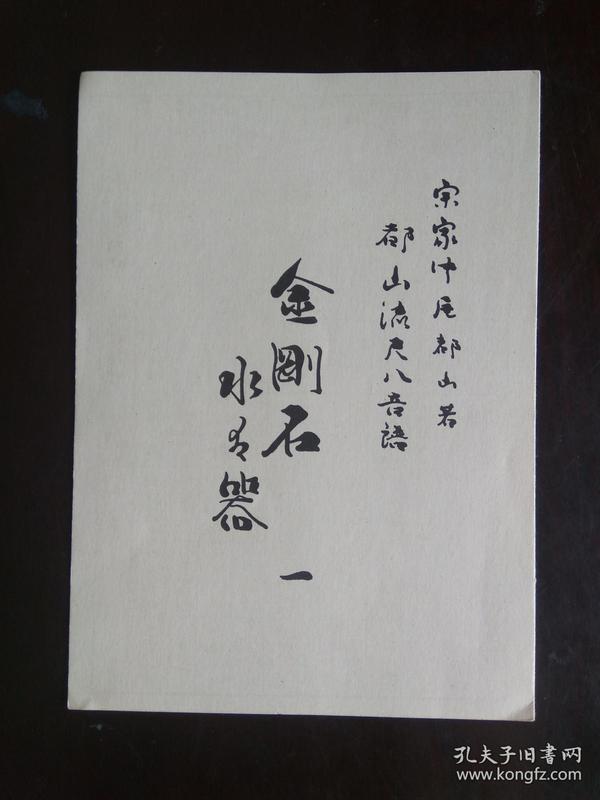 宗家中尾都山著
都山流尺八音譜
金剛石
水は器
一
孔夫子旧書网
www.kongfz.com